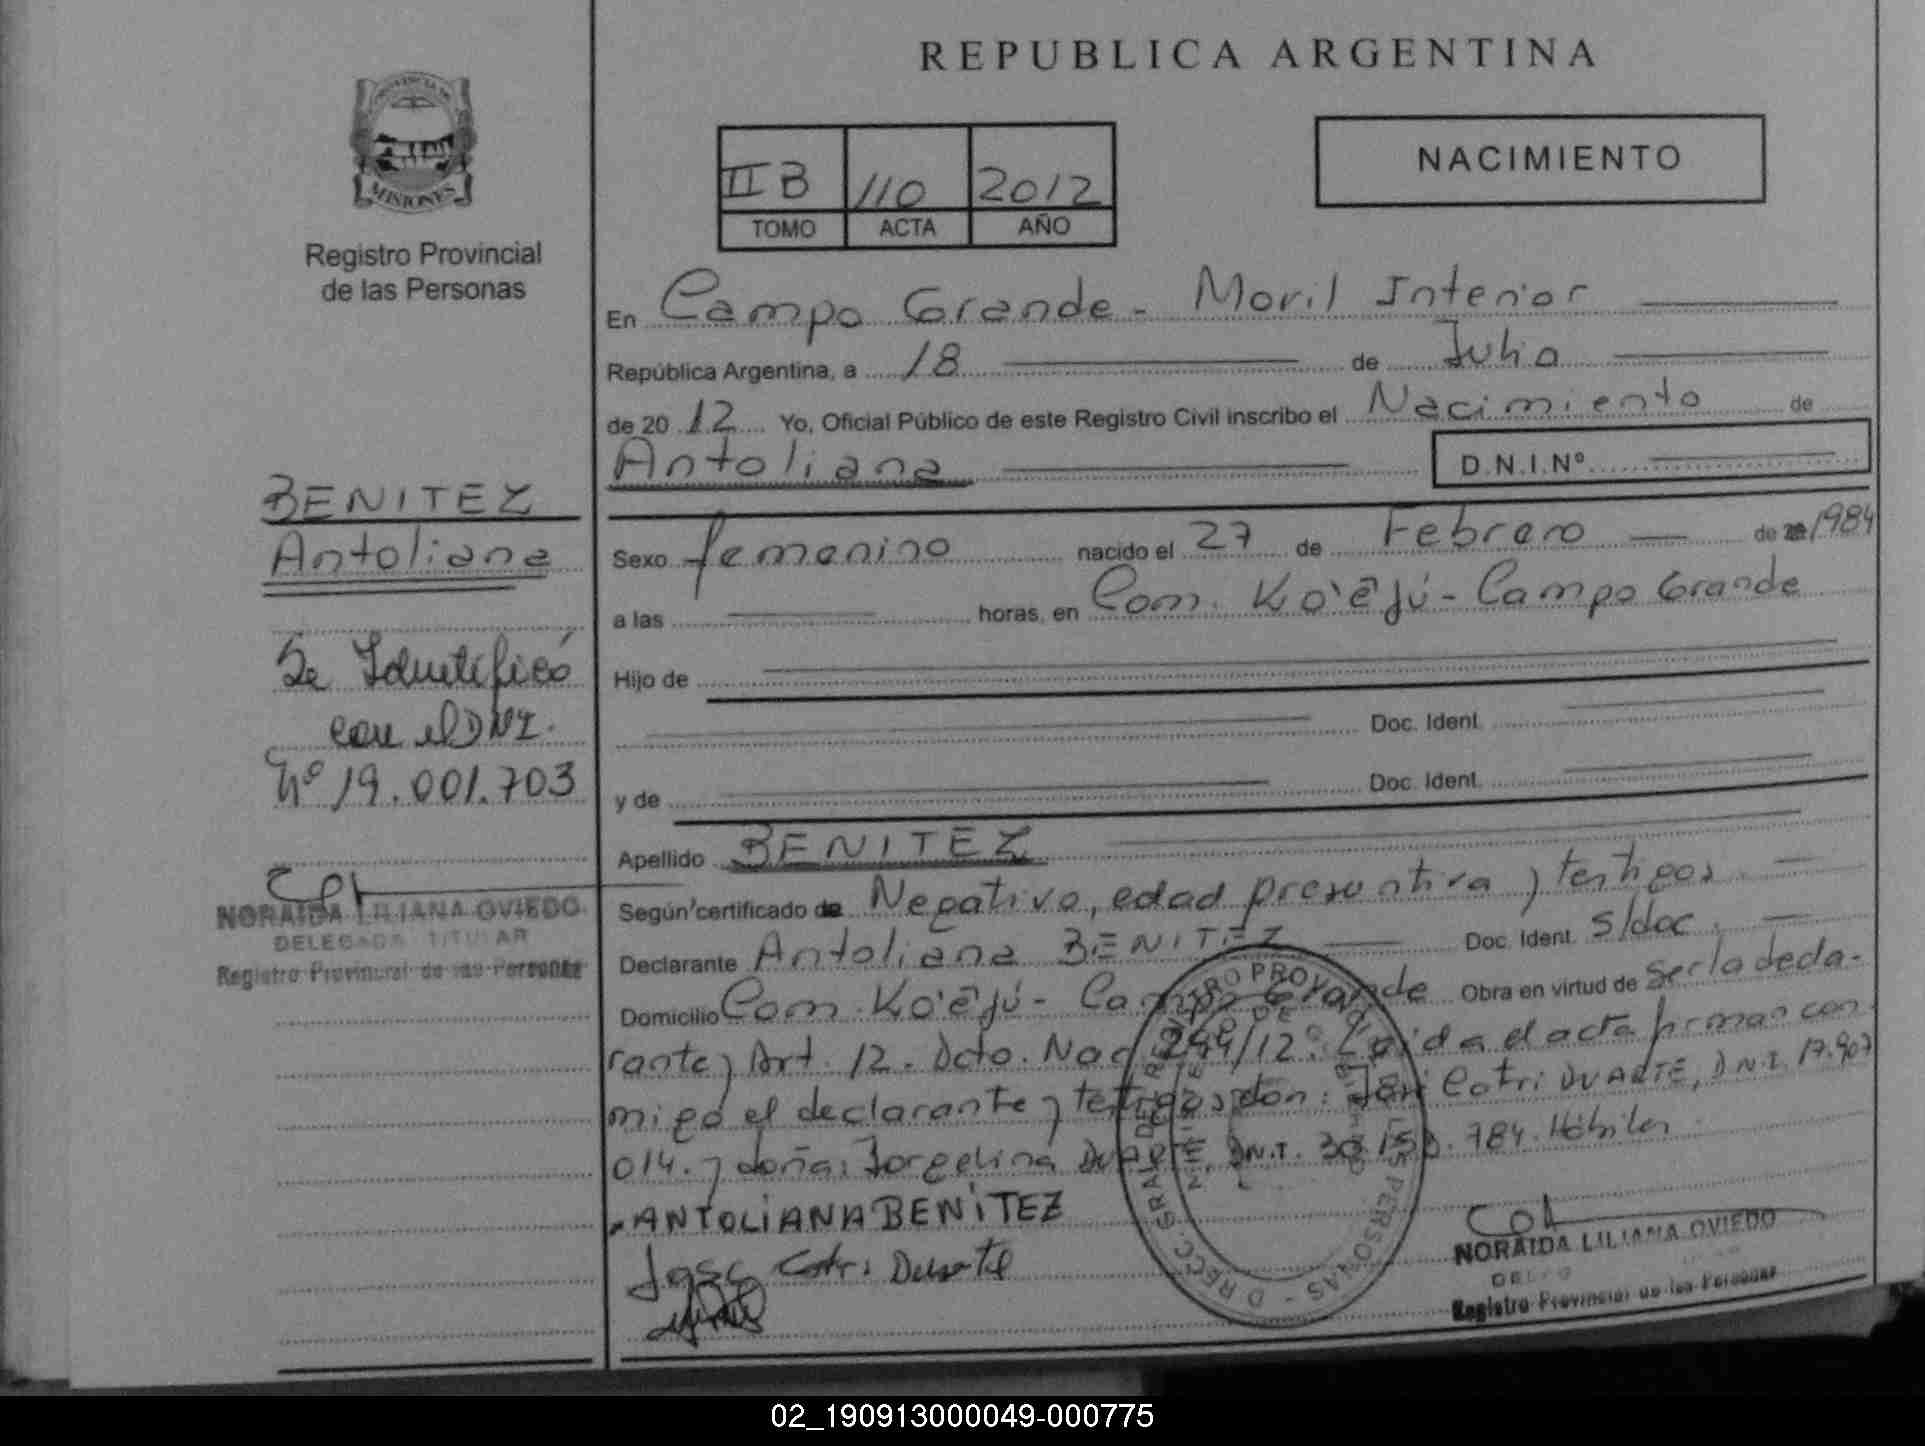 REPUBLICA ARGENTINA
PROVINCIA DE
MISIONES
Registro Provincial
de las Personas
NACIMIENTO
II B 110 2012
TOMO ACTA AÑO
En Campo Grande - Movil Interior
República Argentina, a 18 de Julio
de 20 12 Yo, Oficial Público de este Registro Civil inscribo el Nacimiento de
Antoliana D.N.I.Nº
BENITEZ
Antoliana
Se Identificó
con el DNI.
Nº 19.001.703
NORAIDA LILIANA OVIEDO
DELEGADA TITULAR
Registro Provincial de las Personas
Sexo femenino nacido el 27 de Febrero de 1984
a las horas, en Com. Ko'ẽjú - Campo Grande
Hijo de
Doc. Ident.
y de Doc. Ident.
Apellido BENITEZ
Según certificado de Negativo, edad presuntiva y testigos
Declarante Antoliana BENITEZ Doc. Ident. S/doc.
Domicilio Com. Ko'ẽjú - Campo Grande Obra en virtud de ser la decla-
rante y Art. 12. Dcto. Nac 294/12. Leída el acta firman con
migo el declarante y testigos don: José Catri DUARTE, D.N.I. 17.907
014. y doña: Jorgelina DUARTE, D.N.I. 30.153.784. Hábiles
ANTOLIANA BENITEZ
Jose Catri Duarte
NORAIDA LILIANA OVIEDO
Registro Provincial de las Personas
02_190913000049-000775